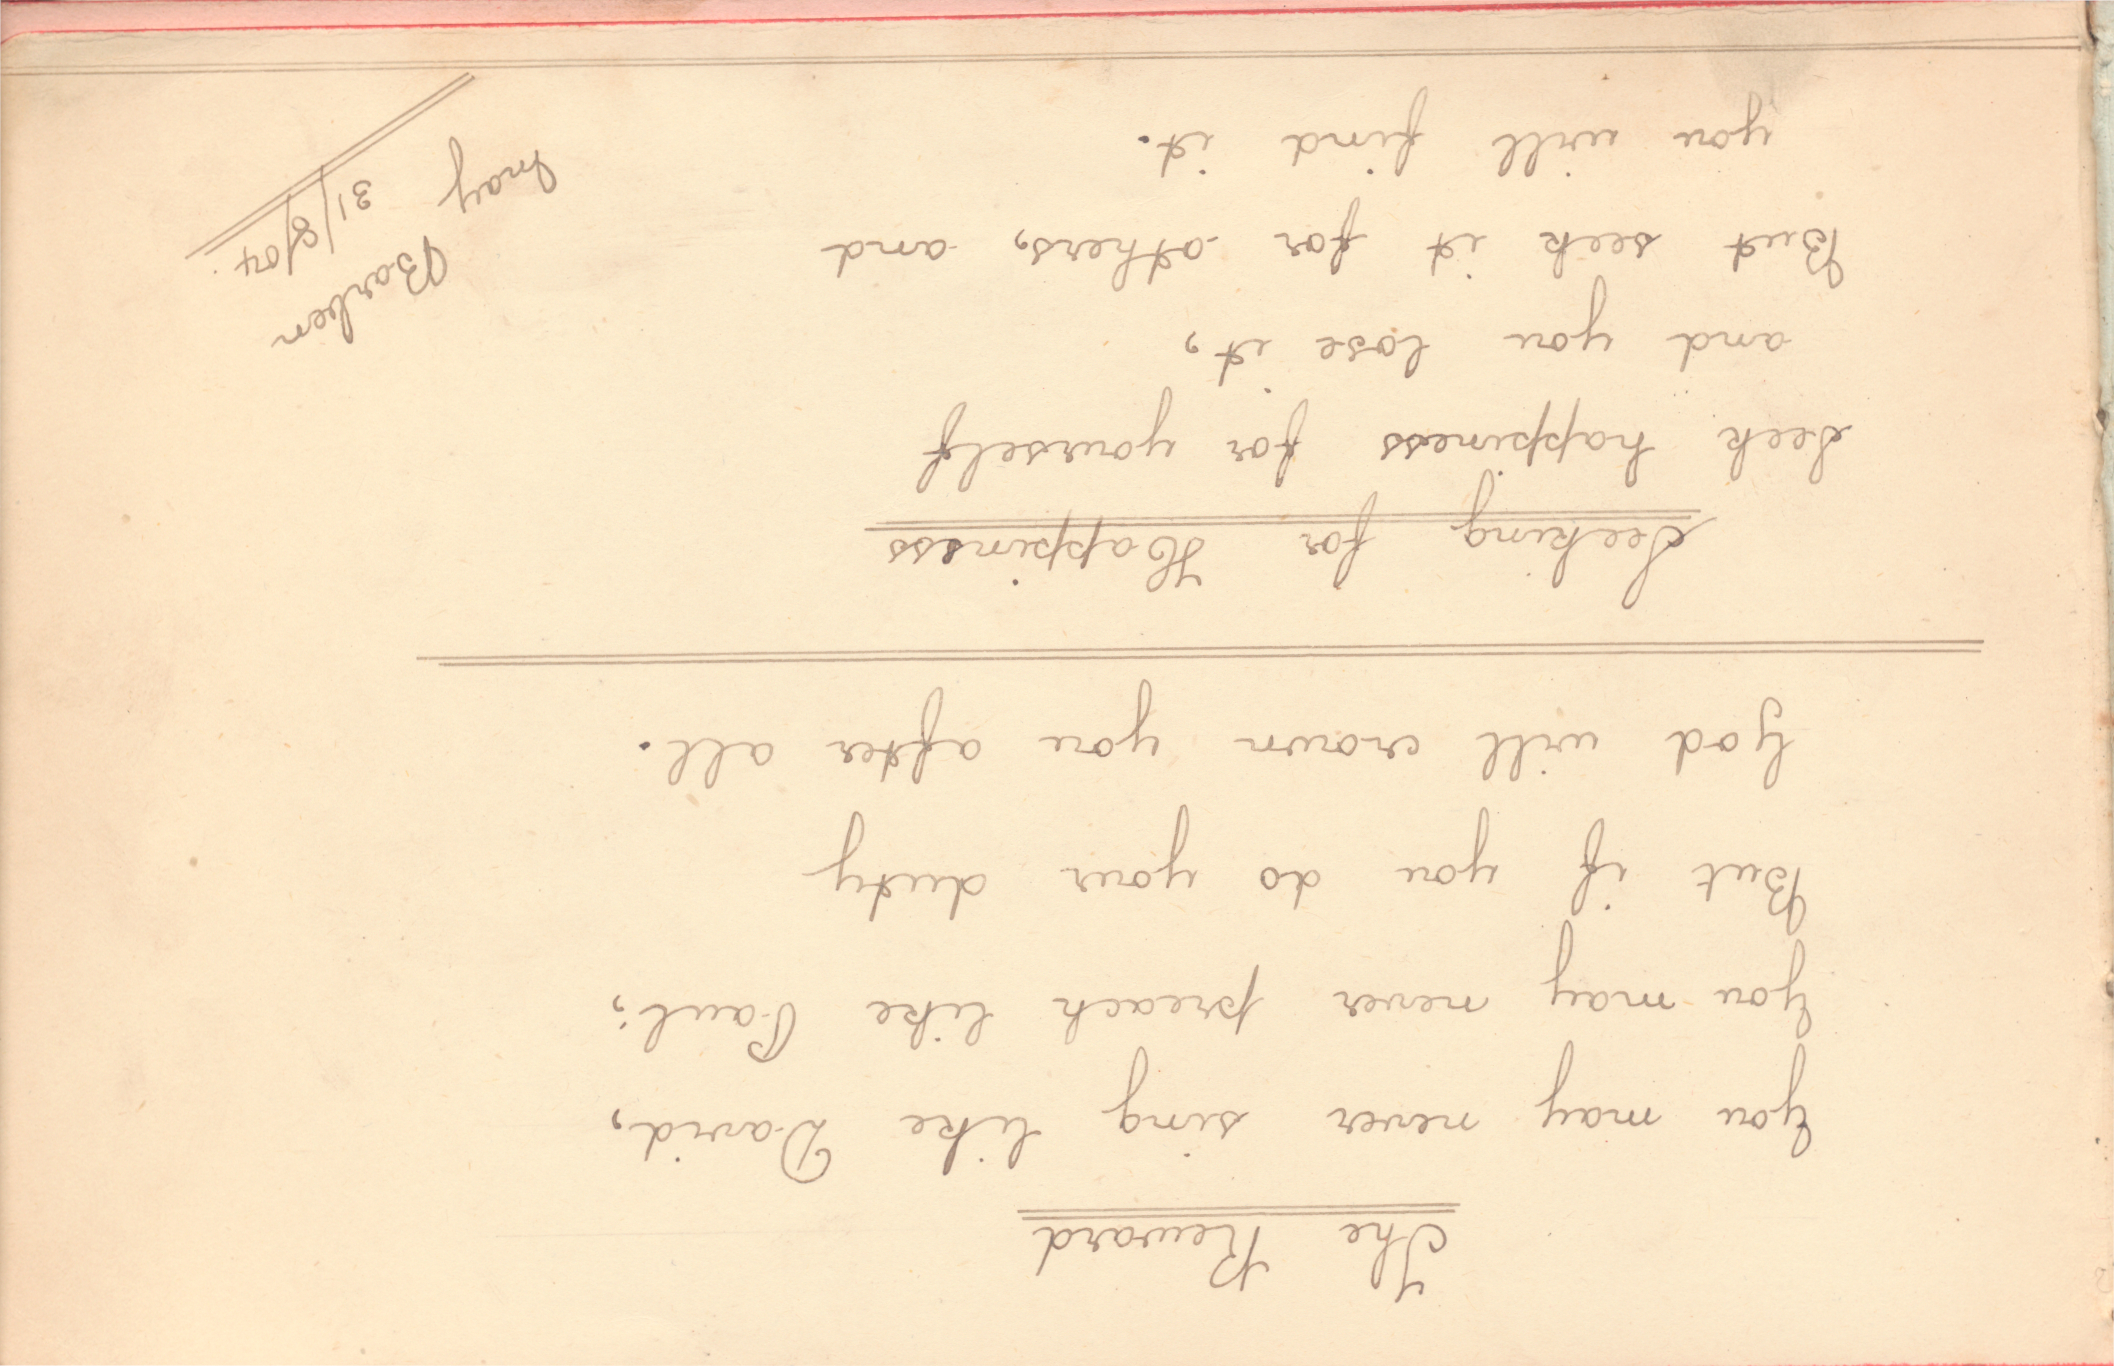 The Reward
You may never sing like David,
You may never preach like Paul;
But if you do your duty
God will crown you after all.
Seeking for Happiness
Seek happiness for yourself
and you lose it,
But seek it for others, and
you will find it.
May Barken
31/8/04